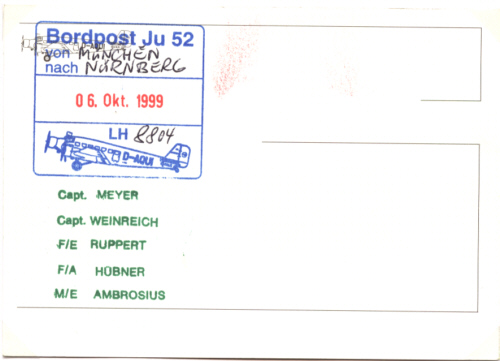 Bordpost Ju 52
von MÜNCHEN
nach NÜRNBERG
06. Okt. 1999
LH 8804
D-AQUI
Capt. MEYER
Capt. WEINREICH
F/E RUPPERT
F/A HÜBNER
M/E AMBROSIUS